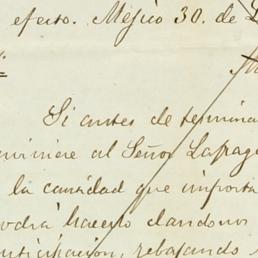 efecto. Méjico 30. de
Si antes de termina
viniere al Señor Lapag
la cantidad que importa
odrá hacerlo dandonos
nticipacion, rebajando